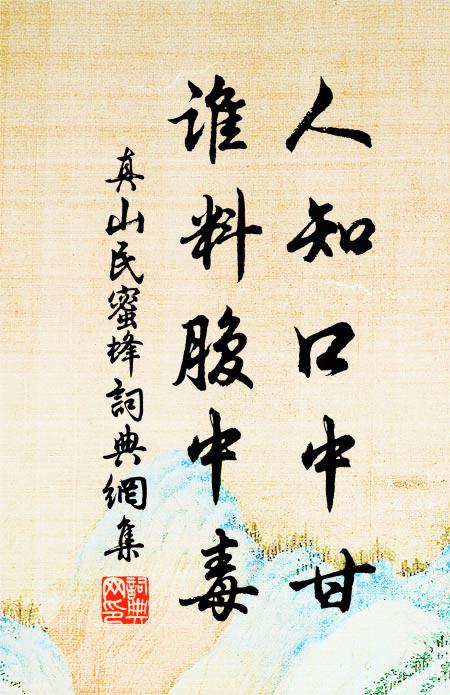 人知口中甘
谁料腹中毒
真山民蜜蜂詞典網集
詞典网印